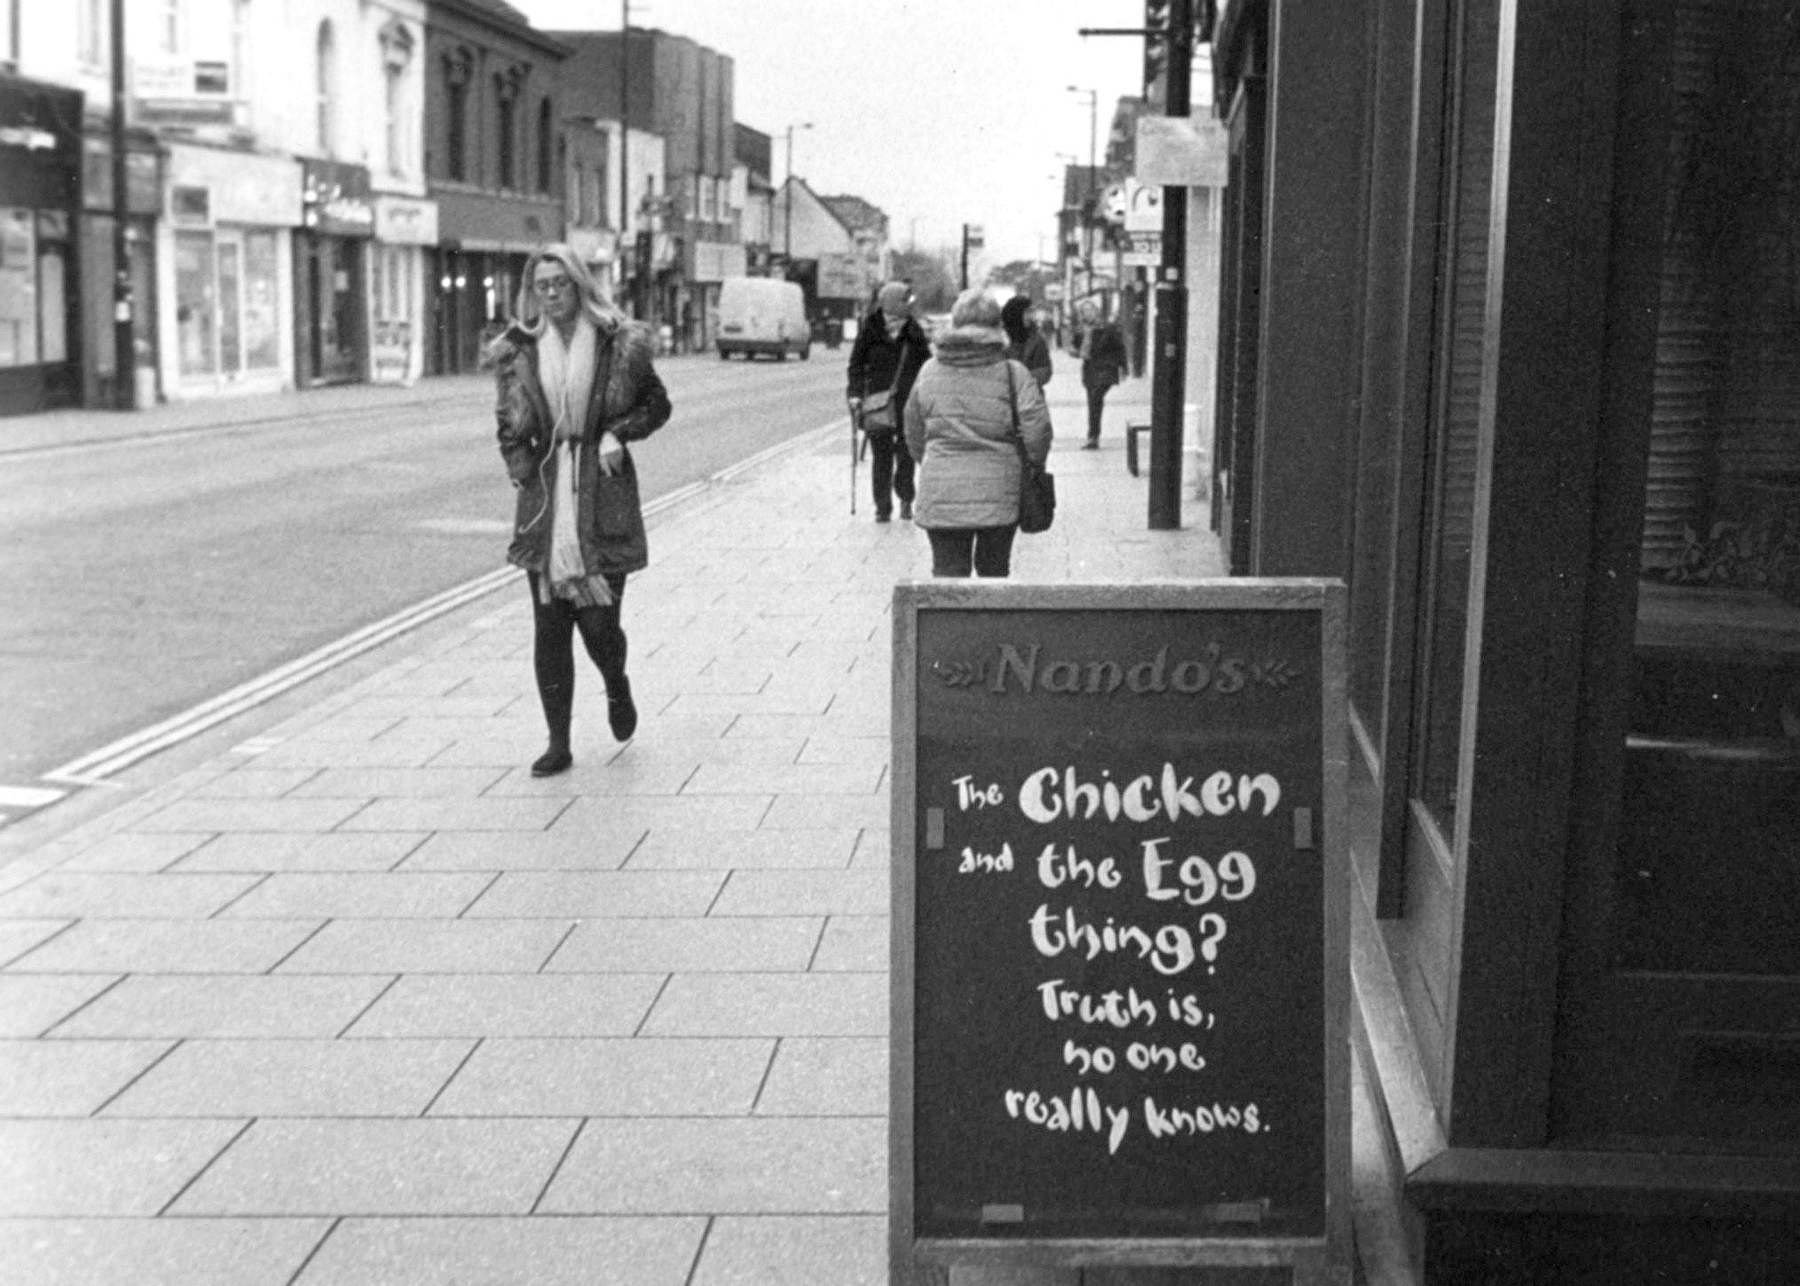 Nando's
The Chicken
and the Egg
thing?
Truth is,
no one
really knows.